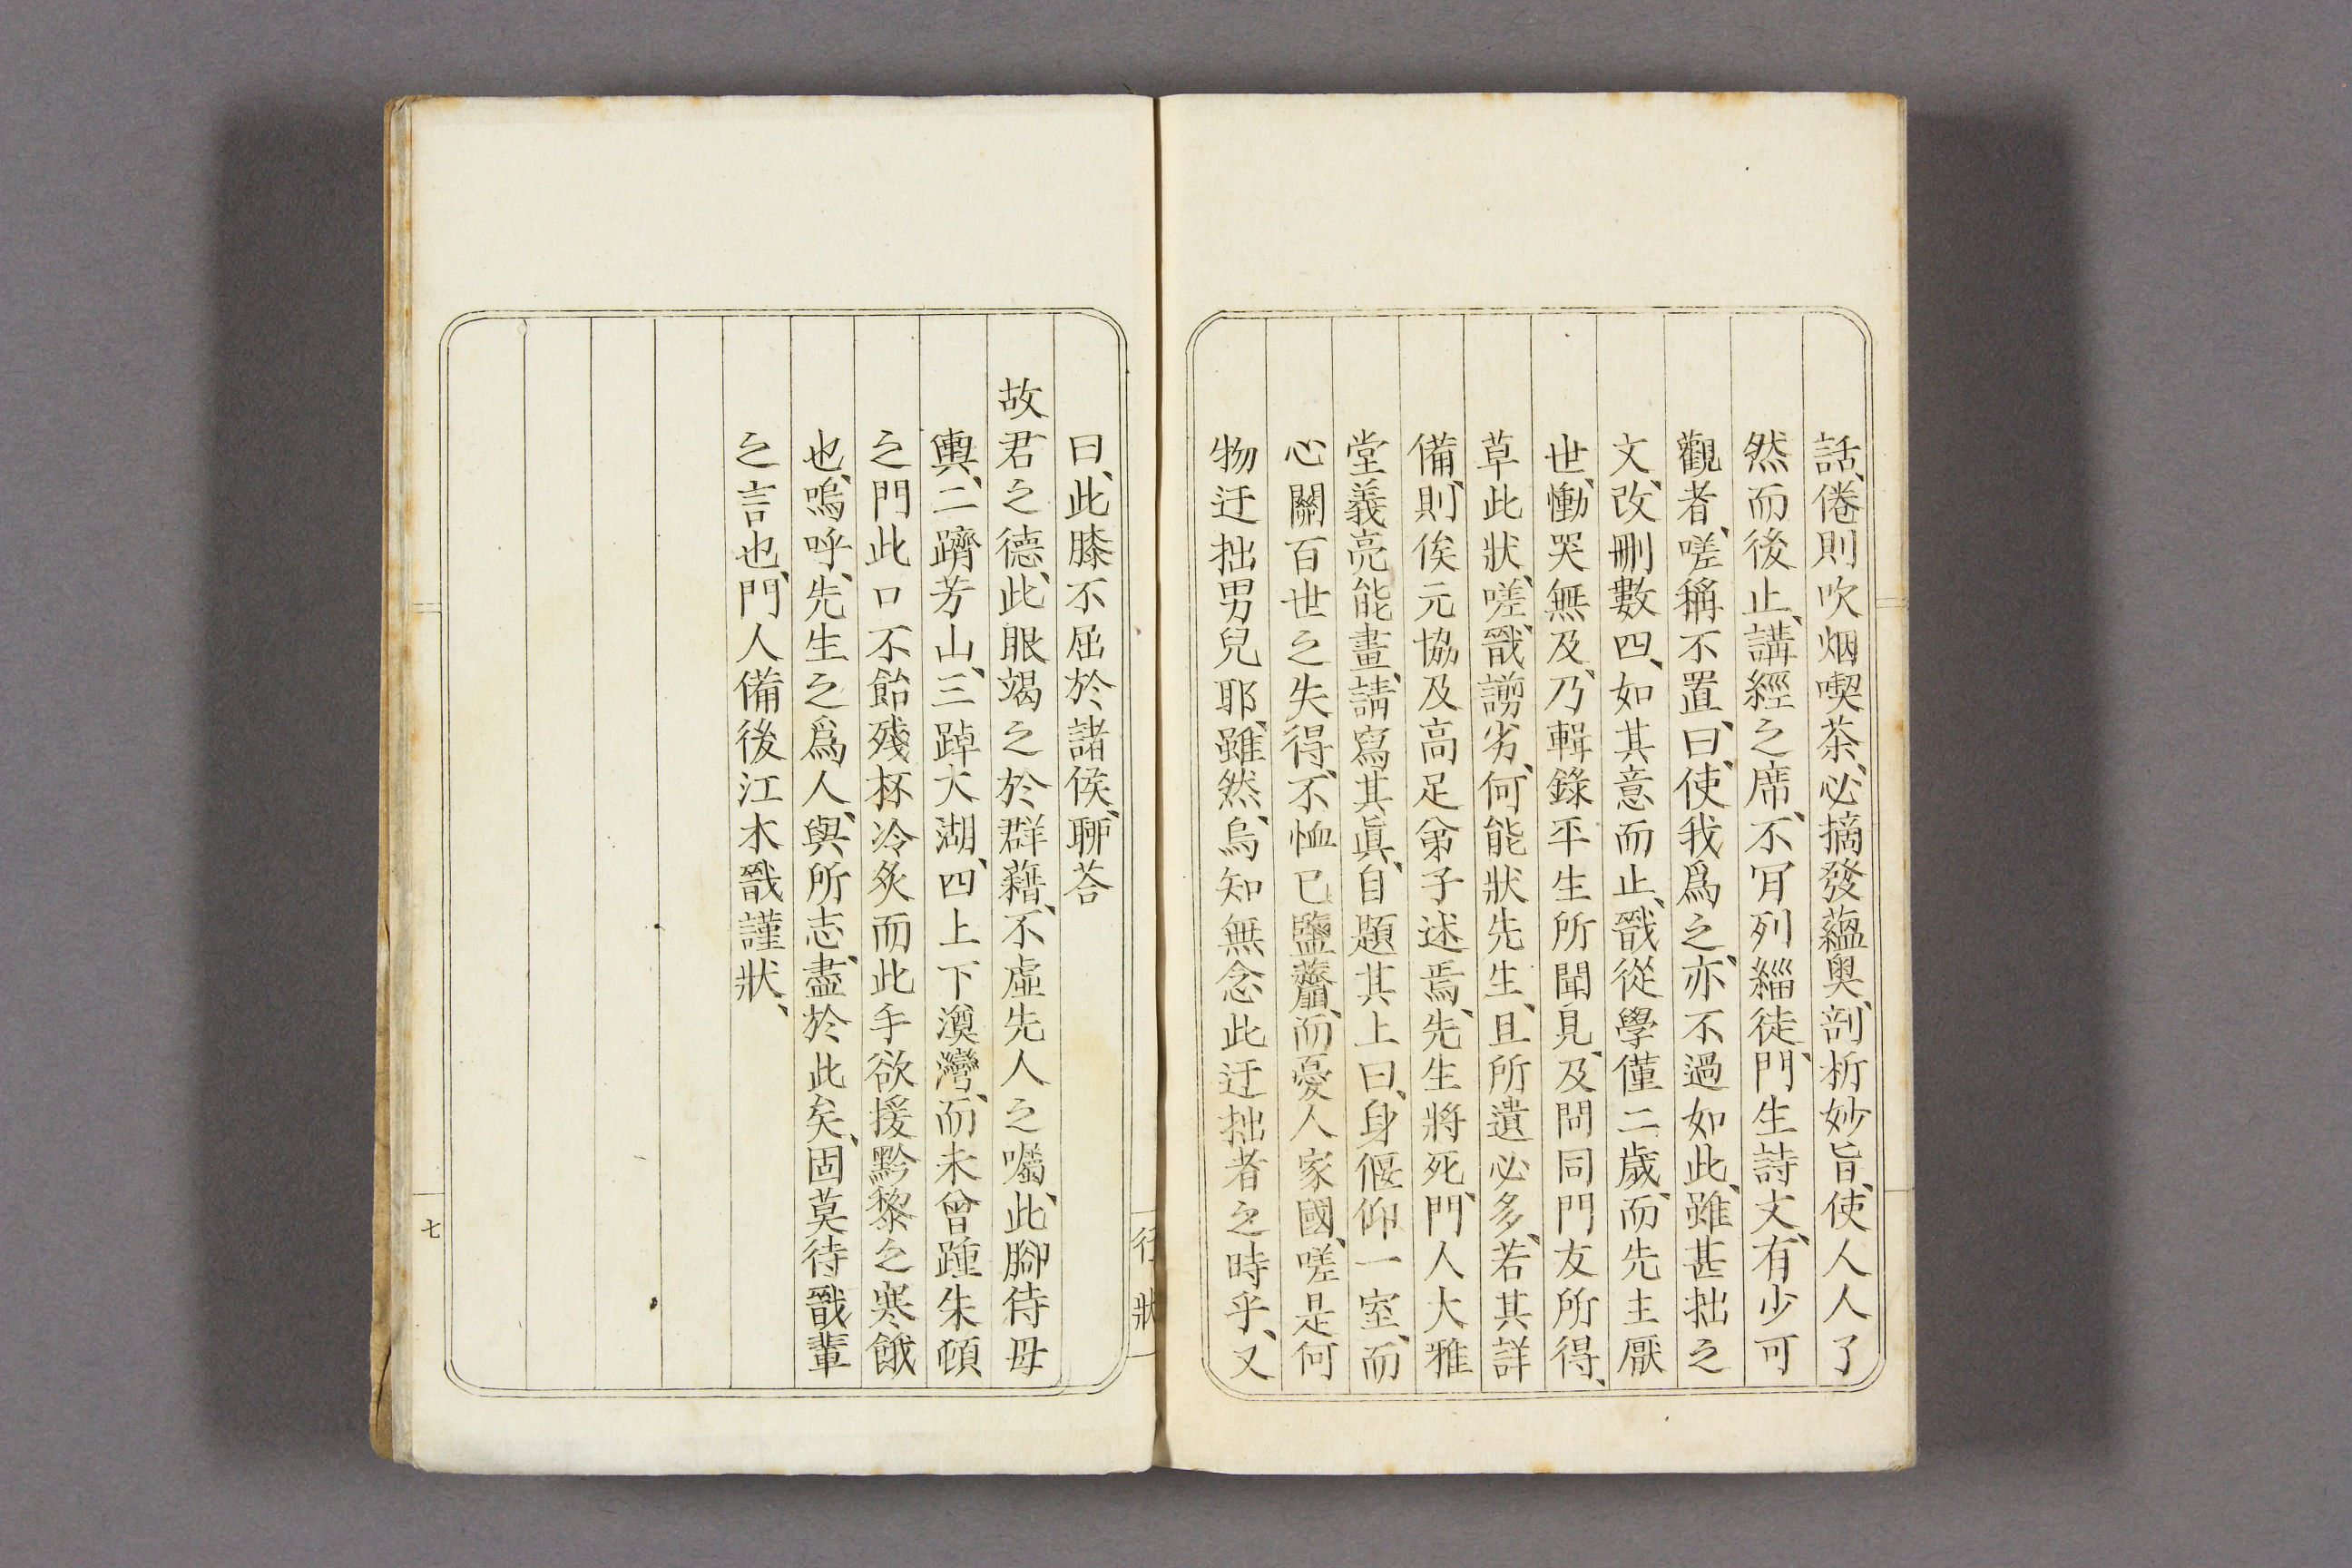 話、倦則吹烟喫茶、必摘發蘊奧、剖析妙旨、使人人了
然而後止、講經之席、不肎列緇徒、門生詩文、有少可
觀者、嗟稱不置、曰、使我爲之、亦不過如此、雖甚拙之
文、改刪數四、如其意而止、戩從學僅二歲、而先生厭
世、慟哭無及、乃輯錄平生所聞見、及問同門友所得、
草此狀、嗟、戩謭劣、何能狀先生、且所遺必多、若其詳
備、則俟元協及高足弟子述焉、先生將死、門人大雅
堂義亮能畫、請寫其眞、自題其上曰、身偃仰一室、而
心關百世之失得、不恤己鹽虀、而憂人家國、嗟是何
物迂拙男兒耶、雖然、烏知無念此迂拙者之時乎、又
行狀
曰、此膝不屈於諸侯、聊荅
故君之德、此眼竭之於群藉、不虛先人之囑、此腳侍母
輿、二躋芳山、三踔大湖、四上下澳灣、而未曾踵朱頓
之門此口不飴殘杯冷炙而此手欲援黔黎之寒餓
也、嗚呼、先生之爲人、與所志、盡於此矣、固莫待戩輩
之言也、門人備後江木戩謹狀、
七